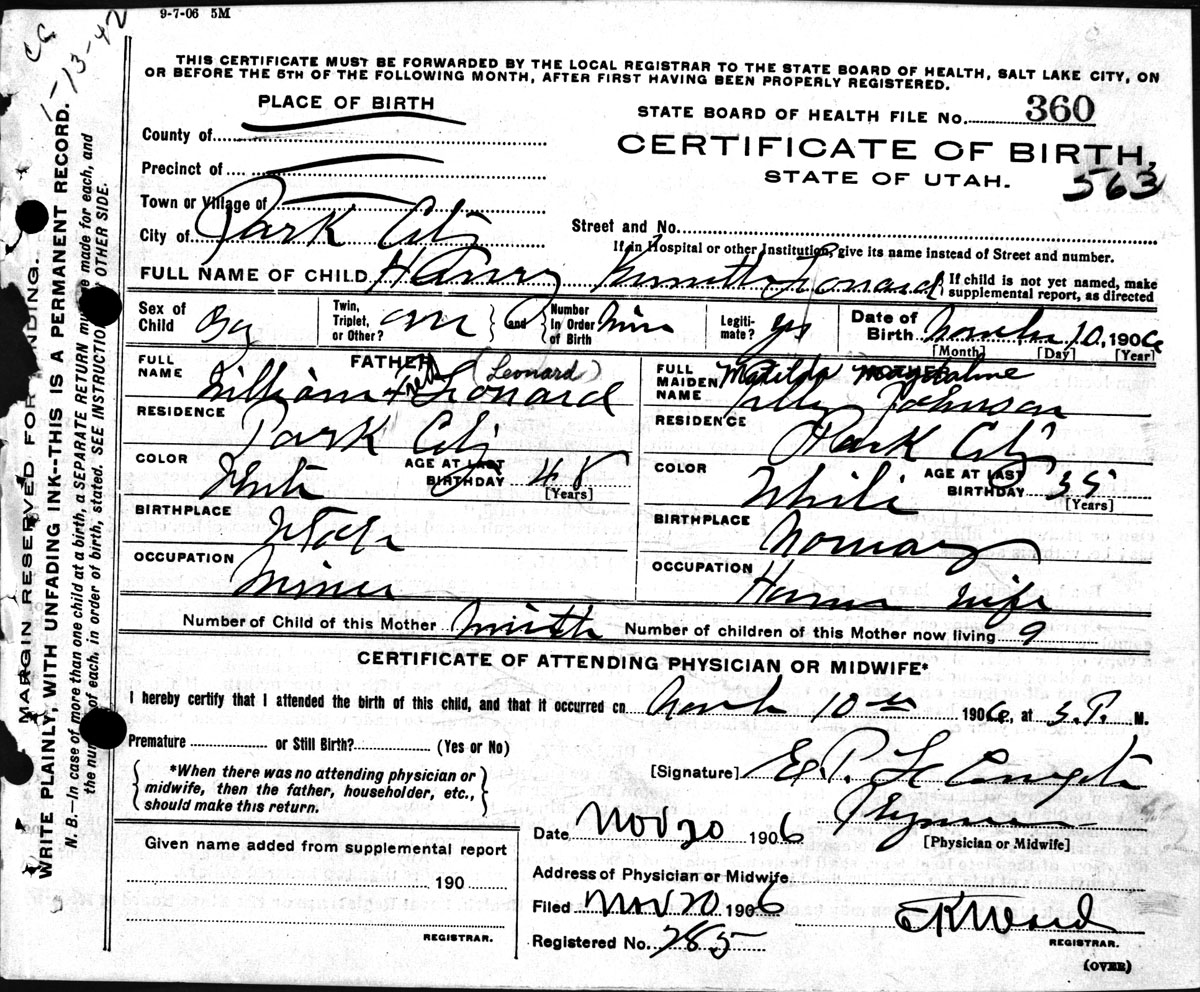 9-7-06 5M
CC
1-13-42
THIS CERTIFICATE MUST BE FORWARDED BY THE LOCAL REGISTRAR TO THE STATE BOARD OF HEALTH, SALT LAKE CITY, ON
OR BEFORE THE 5TH OF THE FOLLOWING MONTH, AFTER FIRST HAVING BEEN PROPERLY REGISTERED.
PLACE OF BIRTH
STATE BOARD OF HEALTH FILE No. 360
County of
CERTIFICATE OF BIRTH,
Precinct of
STATE OF UTAH. 563
Town or Village of
Street and No.
City of Park City
If in Hospital or other Institution, give its name instead of Street and number.
FULL NAME OF CHILD Harry Kenneth Leonard { If child is not yet named, make supplemental report, as directed
Sex of Child Boy Twin, Triplet, or Other? one { and } Number In Order of Birth Legiti- mate? yes Date of Birth November 10, 1906
[Month] [Day] [Year]
FATHER
FULL NAME William Leonard (Leonard)
FULL MAIDEN NAME Matilda Tilly Johnson
RESIDENCE Park City
RESIDENCE Park City
COLOR White AGE AT LAST BIRTHDAY 48 [Years]
COLOR White AGE AT LAST BIRTHDAY 35 [Years]
BIRTHPLACE Utah
BIRTHPLACE Norway
OCCUPATION Miner
OCCUPATION House wife
Number of Child of this Mother Ninth Number of children of this Mother now living 9
CERTIFICATE OF ATTENDING PHYSICIAN OR MIDWIFE*
I hereby certify that I attended the birth of this child, and that it occurred on 10th 1906, at 3.P. M.
Premature or Still Birth? (Yes or No)
{ *When there was no attending physician or midwife, then the father, householder, etc., should make this return. }
[Signature] E. P. Le Compte
Date Nov 20 1906
[Physician or Midwife]
Given name added from supplemental report
190
REGISTRAR.
Address of Physician or Midwife
Filed Nov 20 1906
EKWard
Registered No. 285
REGISTRAR.
(OVER)
MARGIN RESERVED FOR BINDING.
WRITE PLAINLY, WITH UNFADING INK--THIS IS A PERMANENT RECORD.
N. B.—In case of more than one child at a birth, a SEPARATE RETURN must be made for each, and
the number of each, in order of birth, stated. SEE INSTRUCTIONS ON OTHER SIDE.